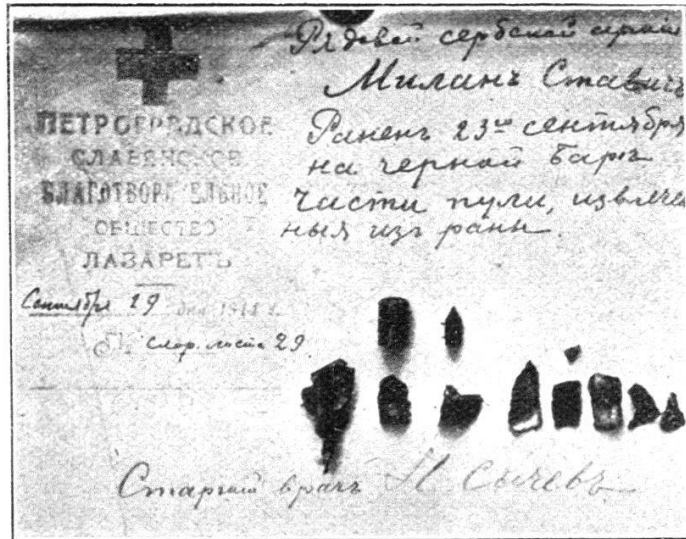 ПЕТРОГРАДСКОЕ
СЛАВЯНСКОЕ
БЛАГОТВОРИТЕЛЬНОЕ
ОБЩЕСТВО
ЛАЗАРЕТЪ
Сентября 19 дня 1914 г.
скор. листа 29.
Рядовой сербской армии
Миланъ Ставичъ
Раненъ 23го сентября
на черной Баръ
Части пули, извлечен
ныя изъ раны.
Старший врачъ Н Сычевъ